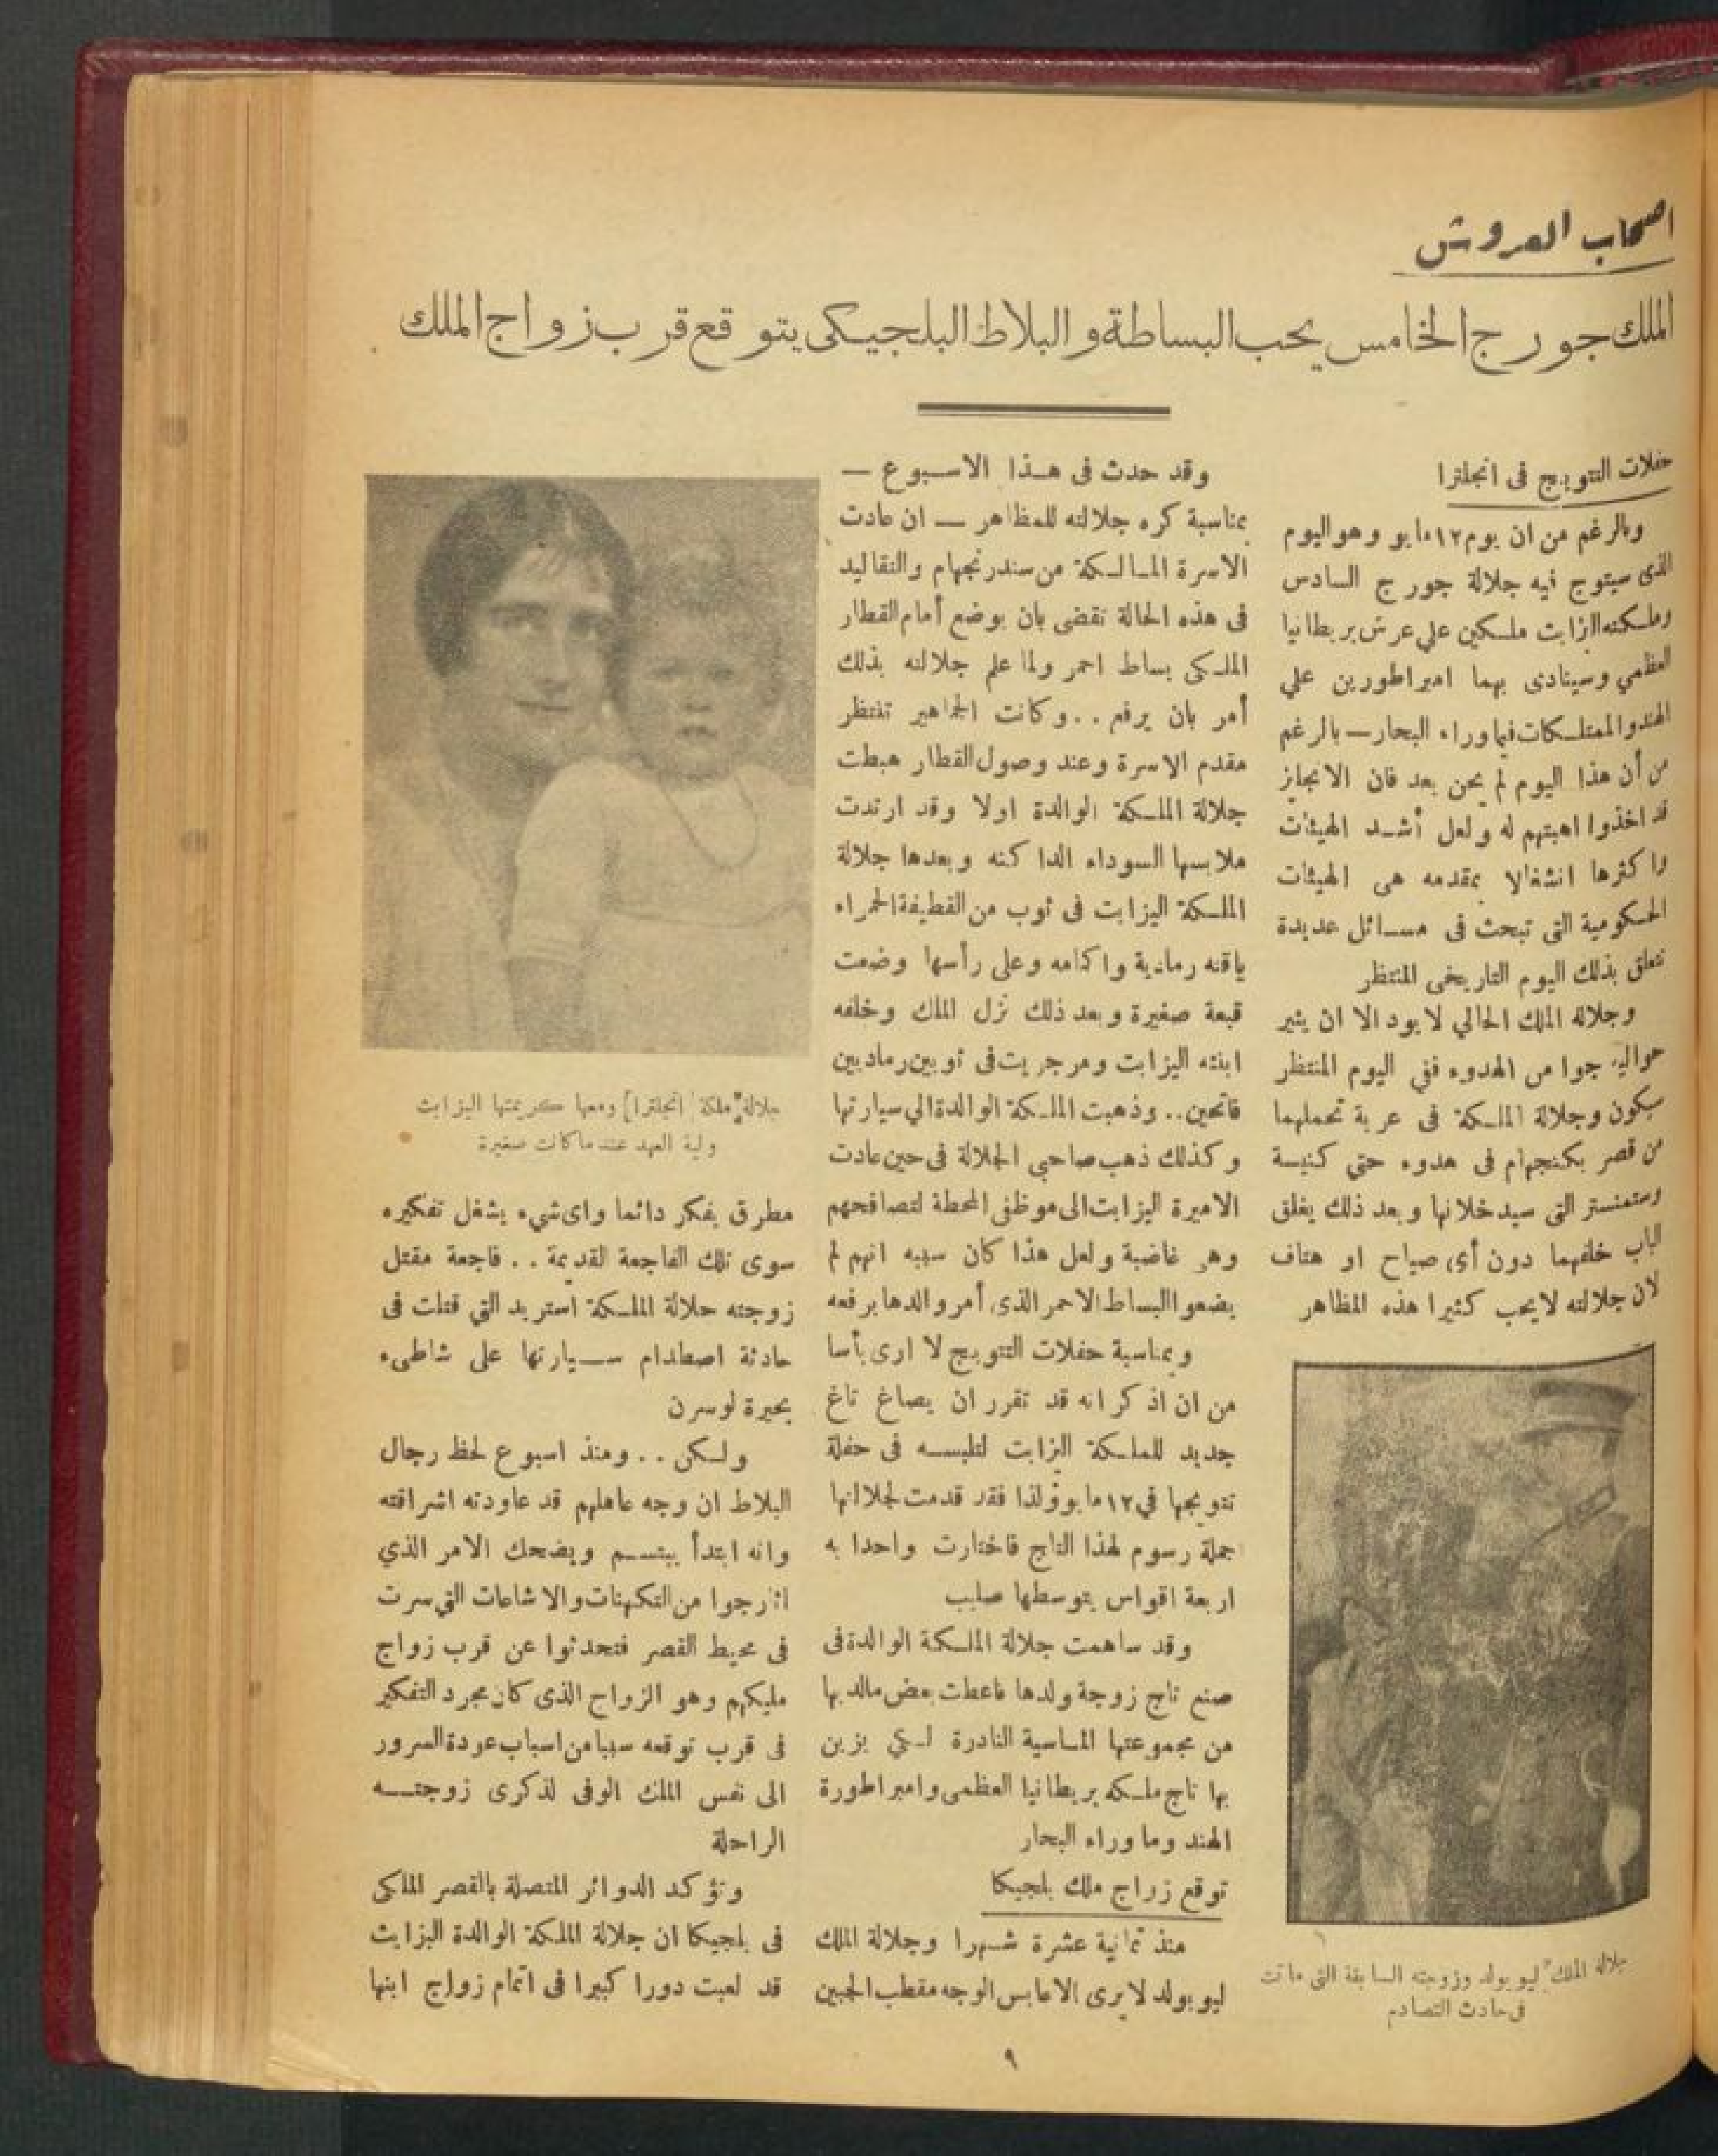 اصحاب العروش
الملك جورج الخامس يحب البساطة والبلاط البلجيكى يتوقع قرب زواج الملك
حفلات التتويج فى انجلترا
وبالرغم من ان يوم ١٢ مايو وهو اليوم
الذى سيتوج فيه جلالة جورج السادس
وملكته الزابت ملكين علي عرش بريطانيا
العظمي وسينادى بهما امبراطورين علي
الهند والممتلكات فيما وراء البحار — بالرغم
من أن هذا اليوم لم يحن بعد فان الانجليز
قد اخذوا اهبتهم له ولعل أشد الهيئات
واكثرها انشغالا بمقدمه هى الهيئات
الحكومية التى تبحث فى مسائل عديدة
تتعلق بذلك اليوم التاريخى المنتظر
وجلاله الملك الحالي لا يود الا ان يثير
حواليه جوا من الهدوء ففي اليوم المنتظر
سيكون وجلالة الملكة فى عربة تحملهما
من قصر بكنجهام فى هدوء حتى كنيسة
وستمنستر التى سيدخلانها وبعد ذلك يغلق
الباب خلفهما دون أى صياح او هتاف
لان جلالته لا يحب كثيرا هذه المظاهر
جلالة الملك ليوبولد وزوجته السابقة التى ماتت
فى حادث التصادم
وقد حدث فى هذا الاسبوع —
بمناسبة كره جلالته للمظاهر — ان عادت
الاسرة المالكة من سندرنجهام والتقاليد
فى هذه الحالة تقضى بان يوضع أمام القطار
الملكى بساط احمر ولما علم جلالته بذلك
أمر بان يرفع .. وكانت الجماهير تنتظر
مقدم الاسرة وعند وصول القطار هبطت
جلالة الملكة الوالدة اولا وقد ارتدت
ملابسها السوداء الداكنه وبعدها جلالة
الملكة اليزابت فى ثوب من القطيفة الحمراء
ياقته رمادية واكمامه وعلى رأسها وضعت
قبعة صغيرة وبعد ذلك نزل الملك وخلفه
ابنته اليزابت ومرجريت فى ثوبين رماديين
فاتحين .. وذهبت الملكة الوالدة الي سيارتها
وكذلك ذهب صاحبي الجلالة فى حين عادت
الاميرة اليزابت الى موظفى المحطة لتصافحهم
وهى غاضبة ولعل هذا كان سببه انهم لم
يضعوا البساط الاحمر الذى أمر والدها برفعه
وبمناسبة حفلات التتويج لا ارى بأسا
من ان اذكر انه قد تقرر ان يصاغ تاغ
جديد للملكة الزابت لتلبسه فى حفلة
تتويجها في ١٢ مايو ولذا فقد قدمت لجلالتها
جملة رسوم لهذا التاج فاختارت واحدا به
اربعة اقواس يتوسطها صليب
وقد ساهمت جلالة الملكة الوالدة فى
صنع تاج زوجة ولدها فاعطت بعض مالديها
من مجموعتها الماسية النادرة لكي يزين
بها تاج ملكه بريطانيا العظمى وامبراطورة
الهند وما وراء البحار
توقع زواج ملك بلجيكا
منذ ثمانية عشرة شهرا وجلالة الملك
ليوبولد لا يرى الا عابس الوجه مقطب الجبين
جلالة ملكة انجلترا ومعها كريمتها اليزابت
ولية العهد عندما كانت صغيرة
مطرق يفكر دائما واى شيء يشغل تفكيره
سوى تلك الفاجعة القديمة .. فاجعة مقتل
زوجته جلالة الملكة استريد التي قتلت فى
حادثة اصطدام سيارتها على شاطىء
بحيرة لوسرن
ولكن .. ومنذ اسبوع لحظ رجال
البلاط ان وجه عاهلهم قد عاودته اشراقته
وانه ابتدأ يبتسم ويضحك الامر الذي
اثار جوا من التكهنات والاشاعات التى سرت
فى محيط القصر فتحدثوا عن قرب زواج
مليكهم وهو الزواج الذى كان مجرد التفكير
فى قرب توقعه سببا من اسباب عودة السرور
الى نفس الملك الوفى لذكرى زوجته
الراحلة
وتؤكد الدوائر المتصلة بالقصر الملكى
فى بلجيكا ان جلالة الملكة الوالدة اليزابت
قد لعبت دورا كبيرا فى اتمام زواج ابنها
٩